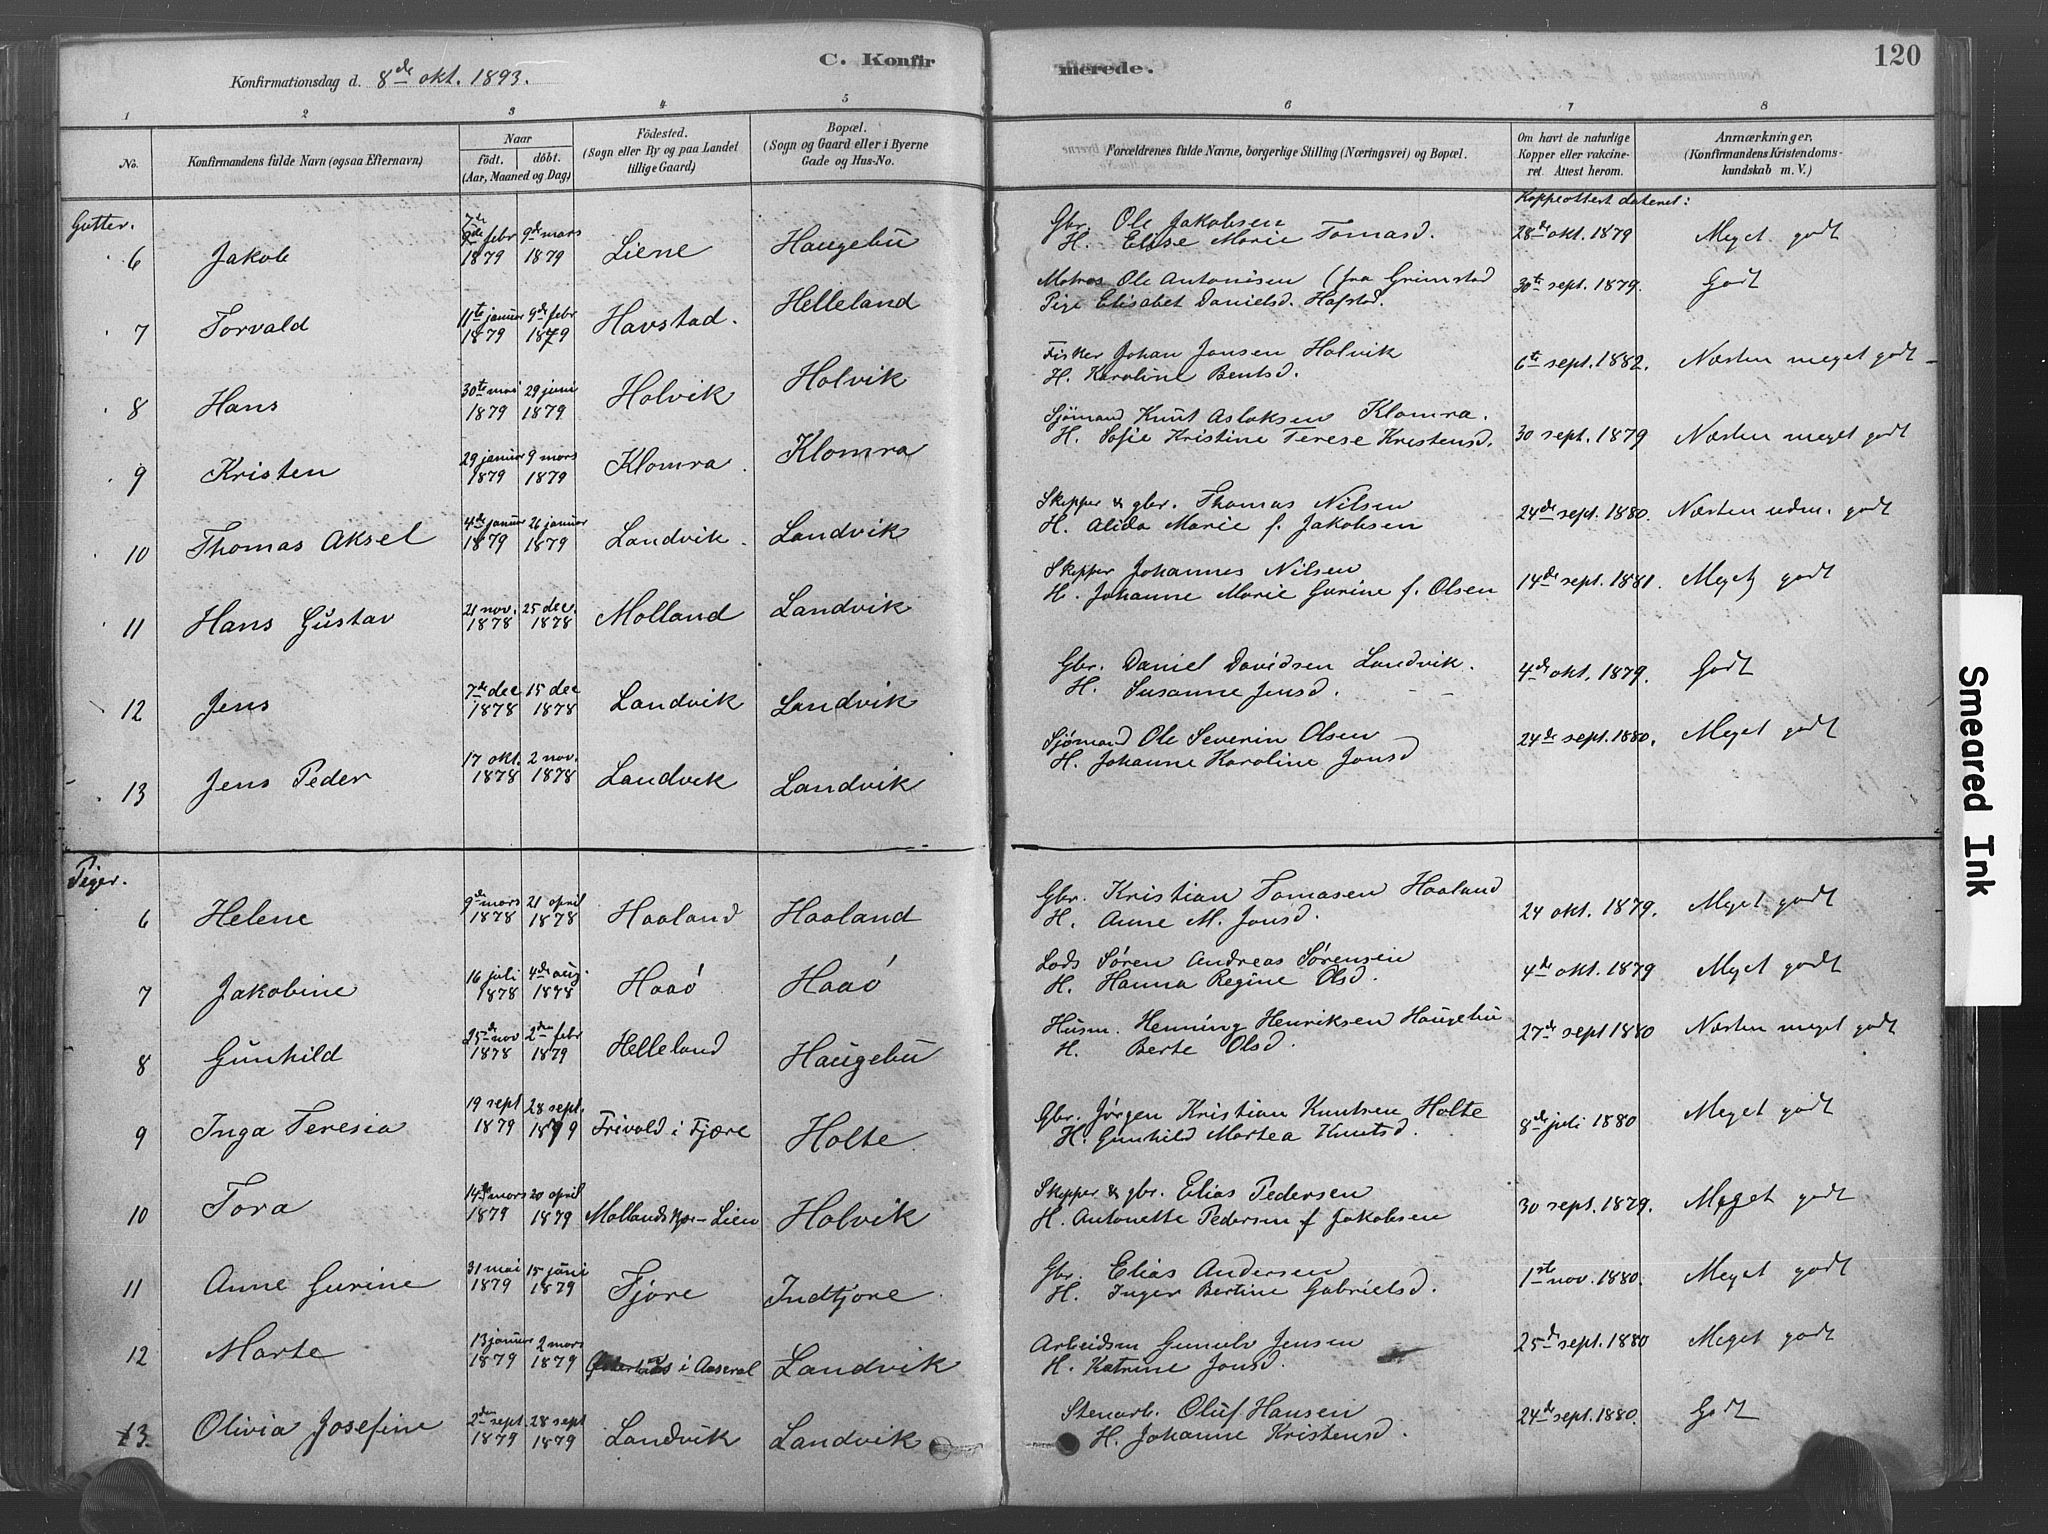 C. Konfir
merede.
120
Konfirmationsdag d. 8de okt. 1893.
1 2 3 4 5 6 7 8
No.
Konfirmandens fulde Navn (ogsaa Efternavn)
Naar
født. døbt.
(Aar, Maaned og Dag)
Fødested.
(Sogn eller By og paa Landet
tillige Gaard)
Bopæl.
(Sogn og Gaard eller i Byerne
Gade og Hus-No.
Forældrenes fulde Navne, borgerlige Stilling (Næringsvei) og Bopæl.
Om havt de naturlige
Kopper eller vakcine-
ret. Attest herom.
Anmærkninger,
(Konfirmandens Kristendoms-
kundskab m. V.)
Koppeattest dateret:
Gutter.
6 Jakob 7de febr 1879 9de mars 1879 Liene Haugebu
Gbr. Ole Jakobsen
H. Elise Marie Tomasd. 28de okt. 1879 Meget godt
7 Torvald 11te januar 1879 9de febr 1879 Havstad. Helleland
Matros Ole Antonisen (fra Grimstad
Pige Elisabet Danielsd. Hafstad. 30te sept. 1879. Godt
8 Hans 30te mai 1879 29 juni 1879 Holvik Holvik
Fisker Johan Jensen Holvik
H. Karoline Bentsd. 6te sept. 1882. Næsten meget godt
9 Kristen 29 januar 1879 9 mars 1879 Klomra. Klomra
Sjømand Knut Aslaksen Klomra.
H. Sofie Kristine Terese Kristensd. 30 sept. 1879 Næsten meget godt
10 Thomas Aksel 4de januar 1879 26 januar 1879 Landvik. Landvik
Skipper & gbr. Thomas Nilsen
H. Alida Marie f. Jakobsen 24de sept. 1880. Næsten udm. godt
11 Hans Gustav 21 nov. 1878 25 dec. 1878 Molland Landvik
Skipper Johannes Nilsen
H. Johanne Marie Gurine f. Olsen 14de sept. 1881. Meget godt
12 Jens 7de dec 1878 15 dec 1878 Landvik Landvik
Gbr. Daniel Davidsen Landvik.
H. Susanne Jensd. 4de okt. 1879. Godt
13 Jens Peder 17 okt. 1878 2 nov. 1878 Landvik Landvik
Sjømand Ole Severin Olsen
H. Johanne Karoline Jonsd 24de sept. 1880. Meget godt
Piger.
6 Helene 9de mars 1878 21 april 1878 Haaland Haaland
Gbr. Kristian Tomasen Haaland
H. Anne M. Jonsd. 24 okt. 1879. Meget godt
7 Jakobine 16 juli 1878 4de aug. 1878 Haaø Haaø
Lods Søren Andreas Sørensen
H. Hanna Regine Olsd. 4de okt. 1879 Meget godt
8 Gunhild 25de nov 1878 2den febr 1879 Helleland Haugebu
Husm. Henning Henriksen Haugebu
H. Berte Olsd. 27de sept 1880 Næsten meget godt
9 Inga Teresia 19 sept 1879 28 sept. 1879 Frivold i Fjære Holte.
Gbr. Jørgen Kristian Knutsen Holte
H. Gunhild Martea Knutsd. 8de juli 1880 Meget godt
10 Tora 14de mars 1879 20 april 1879 Mollands Lien Holvik
Skipper & gbr. Elias Pedersen
H. Antonette Pedersen f Jakobsen 30 sept. 1879. Meget godt
11 Anne Gurine 31 mai 1879 15 juni 1879 Fjøre Indtjøre.
Gbr. Elias Andersen
H. Inger Bertine Gabrielsd. 1ste nov. 1880. Meget godt
12 Marte 13 januar 1879 2 mars 1879 i Aaseral Landvik
Arbeidsm Gunulv Jensen
H. Katrine Jonsd. 25de sept. 1880 Meget godt
13. Olivia Josefine 2den sept. 1879 28 sept 1879 Landvik Landvik
Stenarb. Oluf Hansen
H. Johanne Kristensd. 24de sept. 1880. Godt
Smeared Ink